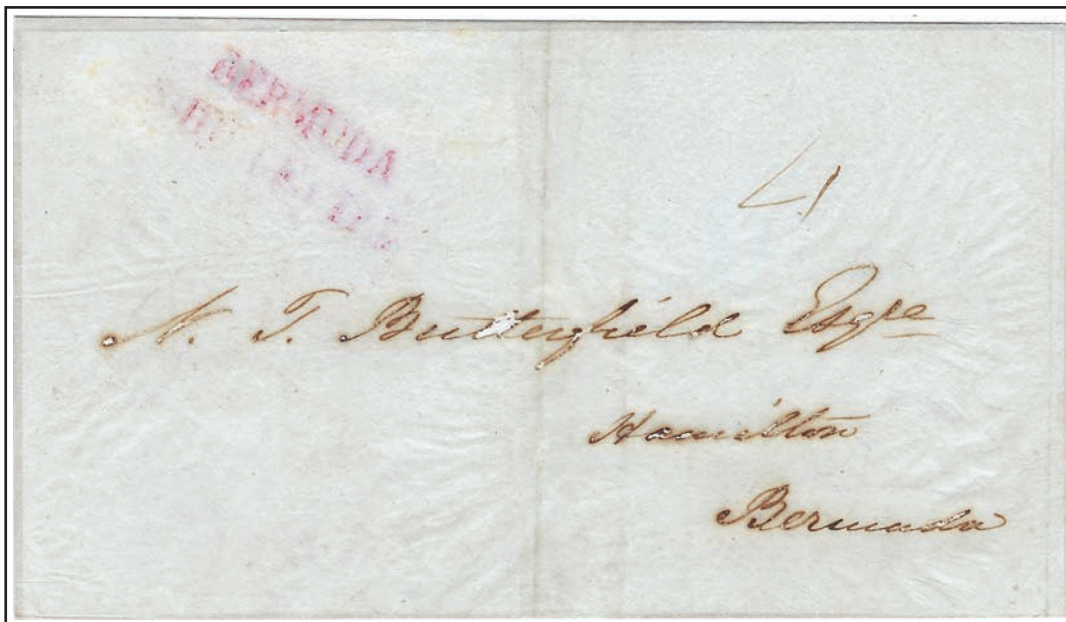 BERMUDA
4
N. T. Butterfield Esqre
Hamilton
Bermuda